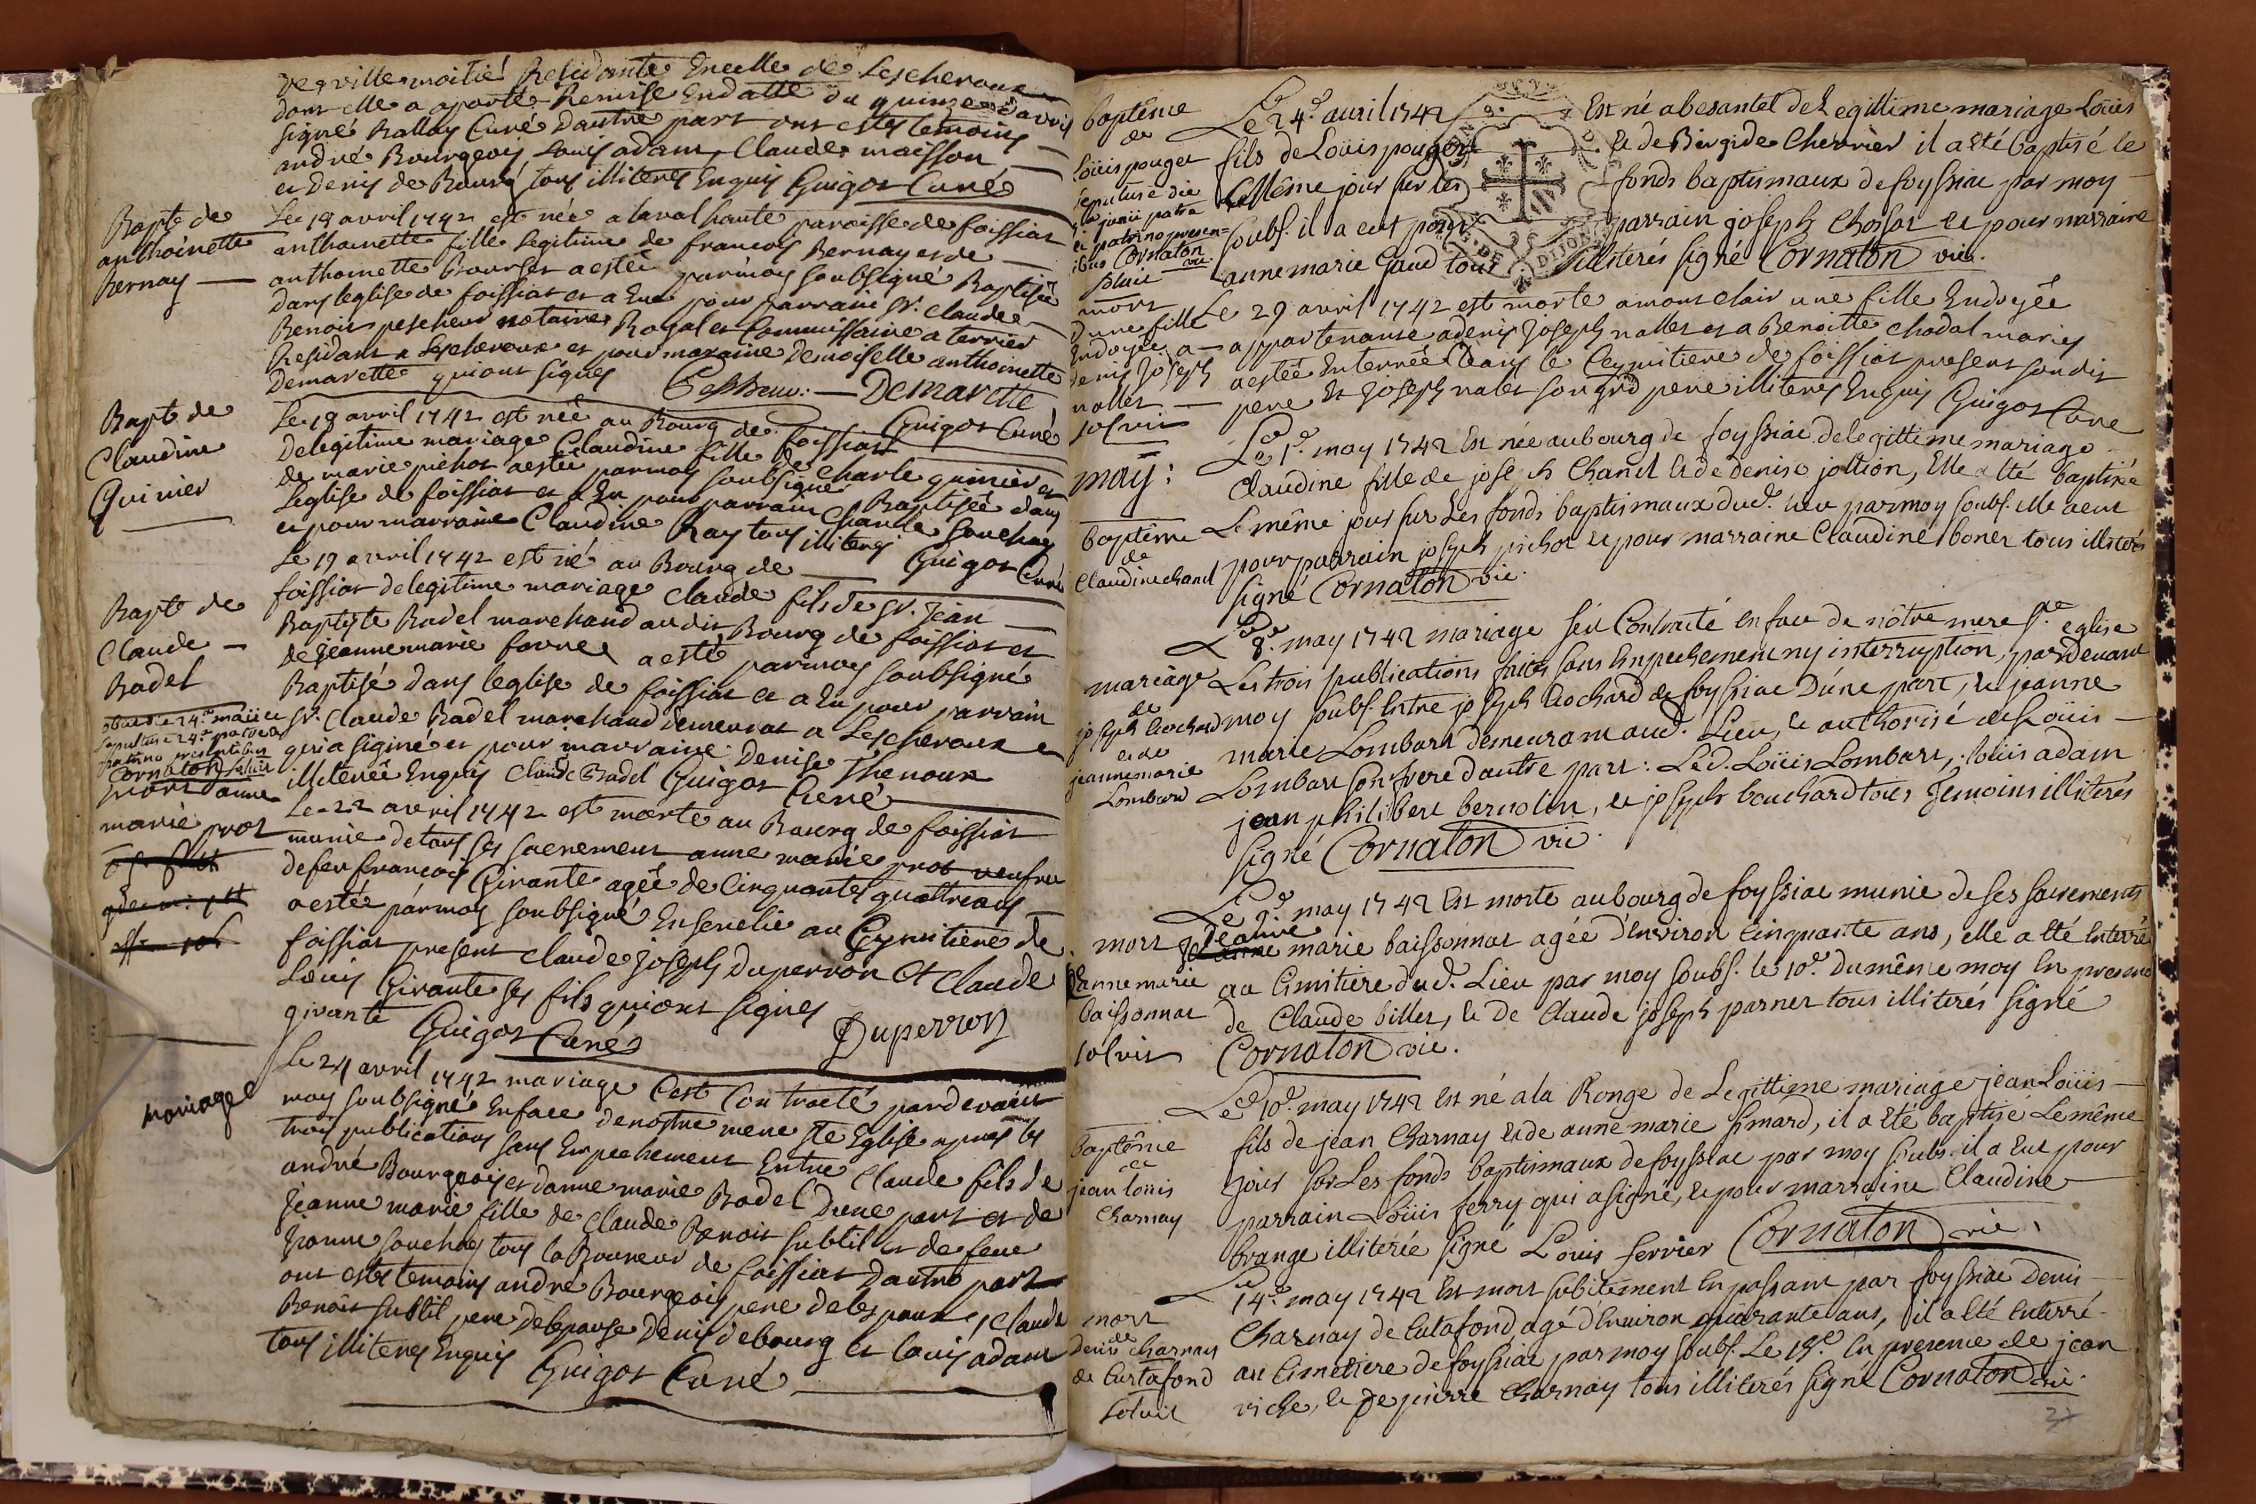 de ville moitié Residante Encelle de Lescheroux
dont elle a aporté Remise Endatte du quinze davril
signé Rallay Curé Dautre part ont estes temoins
andré Bourgeois, Louis adam, Claude maisson
et Denis de Bourg tous illiteres Enquis Guigot Curé
Bapt de
anthoinette
Bernay
Le 19 avril 1742 est née a laval haute paroisse de foissiat
anthoinette fille legitime de francois Bernay et de
anthoinette Bourset a estée par moy soubsigné Baptisée
dans leglise de foissiat et a Eue pour parrain Sr. Claude
Benoit pescheur notaire Royal et Commissaire a terrier
Residant a Lescheroux et pour maraine Demoiselle anthoinette
Demarette qui ont signes — Demarette
Guigot Curé
Bapt de
Claudine
Quinier
Le 19 avril 1742 est née au Bourg de foissiat
Delegitime mariage Claudine fille de Charle quinier et
de marie pichot a estée par moy soubsigné Baptisée dans
leglise de foissiat et a Eu pour parrain Claude Souchay
et pour marraine Claudine Ray tous illiteres
Guigot Curé
Bapt de
Claude
Badel
Le 19 avril 1742 est né au Bourg de
foissiat delegitime mariage Claude fils de Sr. Jean
Baptiste Badel marchand audit Bourg de foissiat et
de Jeanne marie favre a esté par moy soubsigné
Baptisé dans leglise de foissiat et a Eu pour parrain
Sr. Claude Badel marchand demeurant a Lescheroux
qui a signé et pour marraine Denise Thenoux
illiterée Enquis Claude Badel Guigot Curé
Cornaton
mort anne
marie prot
Le 22 avril 1742 est morte au Bourg de foissiat
munie de tous ses sacrement anne marie prot veufve
defeu francois Girante agée de Cinquante quattre ans
a estée par moy soubsigné Ensevelie au Cymitiere de
foissiat present Claude Joseph Duperron et Claude
Louis Girante ses fils qui ont signes
girante Guigot Curé Duperron
Mariage
Le 24 avril 1742 mariage Cest Contracté par devant
moy soubsigné Enface denostre mere ste Eglise apres les
trois publications sans Empechement Entre Claude fils de
andré Bourgeois et danne marie Badel Dune part et de
Jeanne marie fille de Claude Benoit subtil et de feue
Jeanne souchay tous laboureur de foissiat Dautre part
ont estes temoins andré Bourgeois pere delespoux, Claude
Benoit subtil pere delepouse Denis debourg et louis adam
tous illiteres Enquis
Guigot Curé
baptême
de
Loüis pouget
Le 24e. auril 1742 Est né abesantel de Legittime mariage Loüis
fils de Loüis pouget & de Brigide Chevrier il a eté baptisé le
mëme jour sur les fonds baptismaux de foyssiac par moy
soubs. il a eut pour parrain joseph Chossat et pour marraine
anne marie Gaud tous illiterés signé Cornaton vic.
mort
dune fille
Endoyée a
denis Joseph
nallet
solvit
Le 29 avril 1742 est morte amont clair une fille Endoyée
appartenante adenis Joseph nallet et a Benoitte Chadal maries
a estée Enterrée dans le Ceymitiere de foissiat present sondit
pere Et Joseph nalet son grd pere illiteres Enquis Guigot Curé
may:
baptême
de
Claudine chanel
Le 1e. may 1742 Est née aubourg de foyssiac delegittime mariage
Claudine fille de joseph Chanel & de denise jollion, Elle a eté baptisée
Le même jour sur Les fonds baptismaux dud. lieu par moy soubs. elle a eut
pour parrain joseph pichot et pour marraine Claudine boner tous illiterés
signé Cornaton vic.
mariage
de
joseph Cochard
et de
jeanne marie
Lombard
Le 8e. may 1742 mariage s'est Contracté En face de nôtre mere Ste. eglise
Les trois publications faites sans Empechement ny interruption, pardevant
moy soubs. Entre joseph Cochard de foyssiac D'une part, & jeanne
marie Lombard demeurant aud. Lieu, & authorisé de Loüis
Lombart son frere d'autre part: Led. Loüis Lombart, loüis adam
jean philibert bernolin, & joseph bouchard tous Temoins illiterés
signé Cornaton vic.
mort
jeanne marie
baissonnat
solvit
Le 9e. may 1742 Est morte au bourg de foyssiac munie de ses sacrements
Jeanne marie baissonnat agée d'Environ Cinquante ans, elle a eté Enterré
au Cimitiere dud. Lieu par moy soubs. le 10e. du même moy En presence
de Claude billet, & de Claude joseph parnet tous illiterés signé
Cornaton vic.
baptême
de
jean loüis
Charnay
Le 10e. may 1742 Est né a la Ronge de Legittime mariage jean Loüis
fils de jean Charnay & de anne marie simard, il a eté baptisé Le même
jour sur Les fonds baptismaux de foyssiac par moy soubs. il a Eut pour
parrain Loüis ferry qui a signé, & pour marraine Claudine
brange illiterée signé Louis ferrier Cornaton vic.
mort
de
Denis charnay
de Curtafond
solvit
Le 14e. may 1742 Est mort subitement En passant par foyssiac Denis
Charnay de Cutafond, agé d'Environ quarante ans, il a eté Enterré
au Cimetiere de foyssiac par moy soubs. Le 15e. En presence de jean
viche, & de pierre Charnay tous illiterés signé Cornaton vic.
27